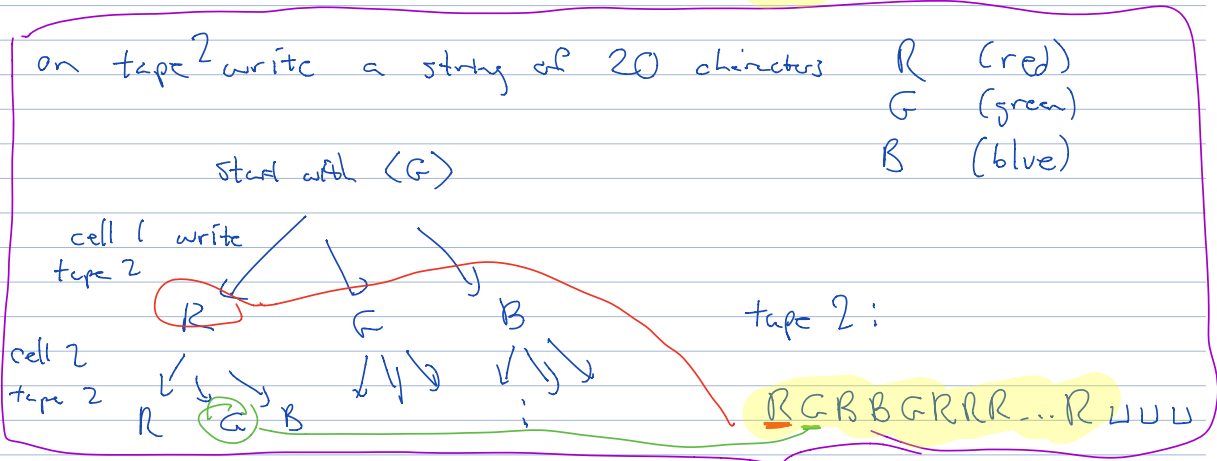 on tape 2 write a string of 20 characters R (red)
G (green)
B (blue)
start with ⟨G⟩
cell 1 write
tape 2
R G B
tape 2:
cell 2
tape 2
R G B ⋮
R G B B G R R R ... R ⊔ ⊔ ⊔